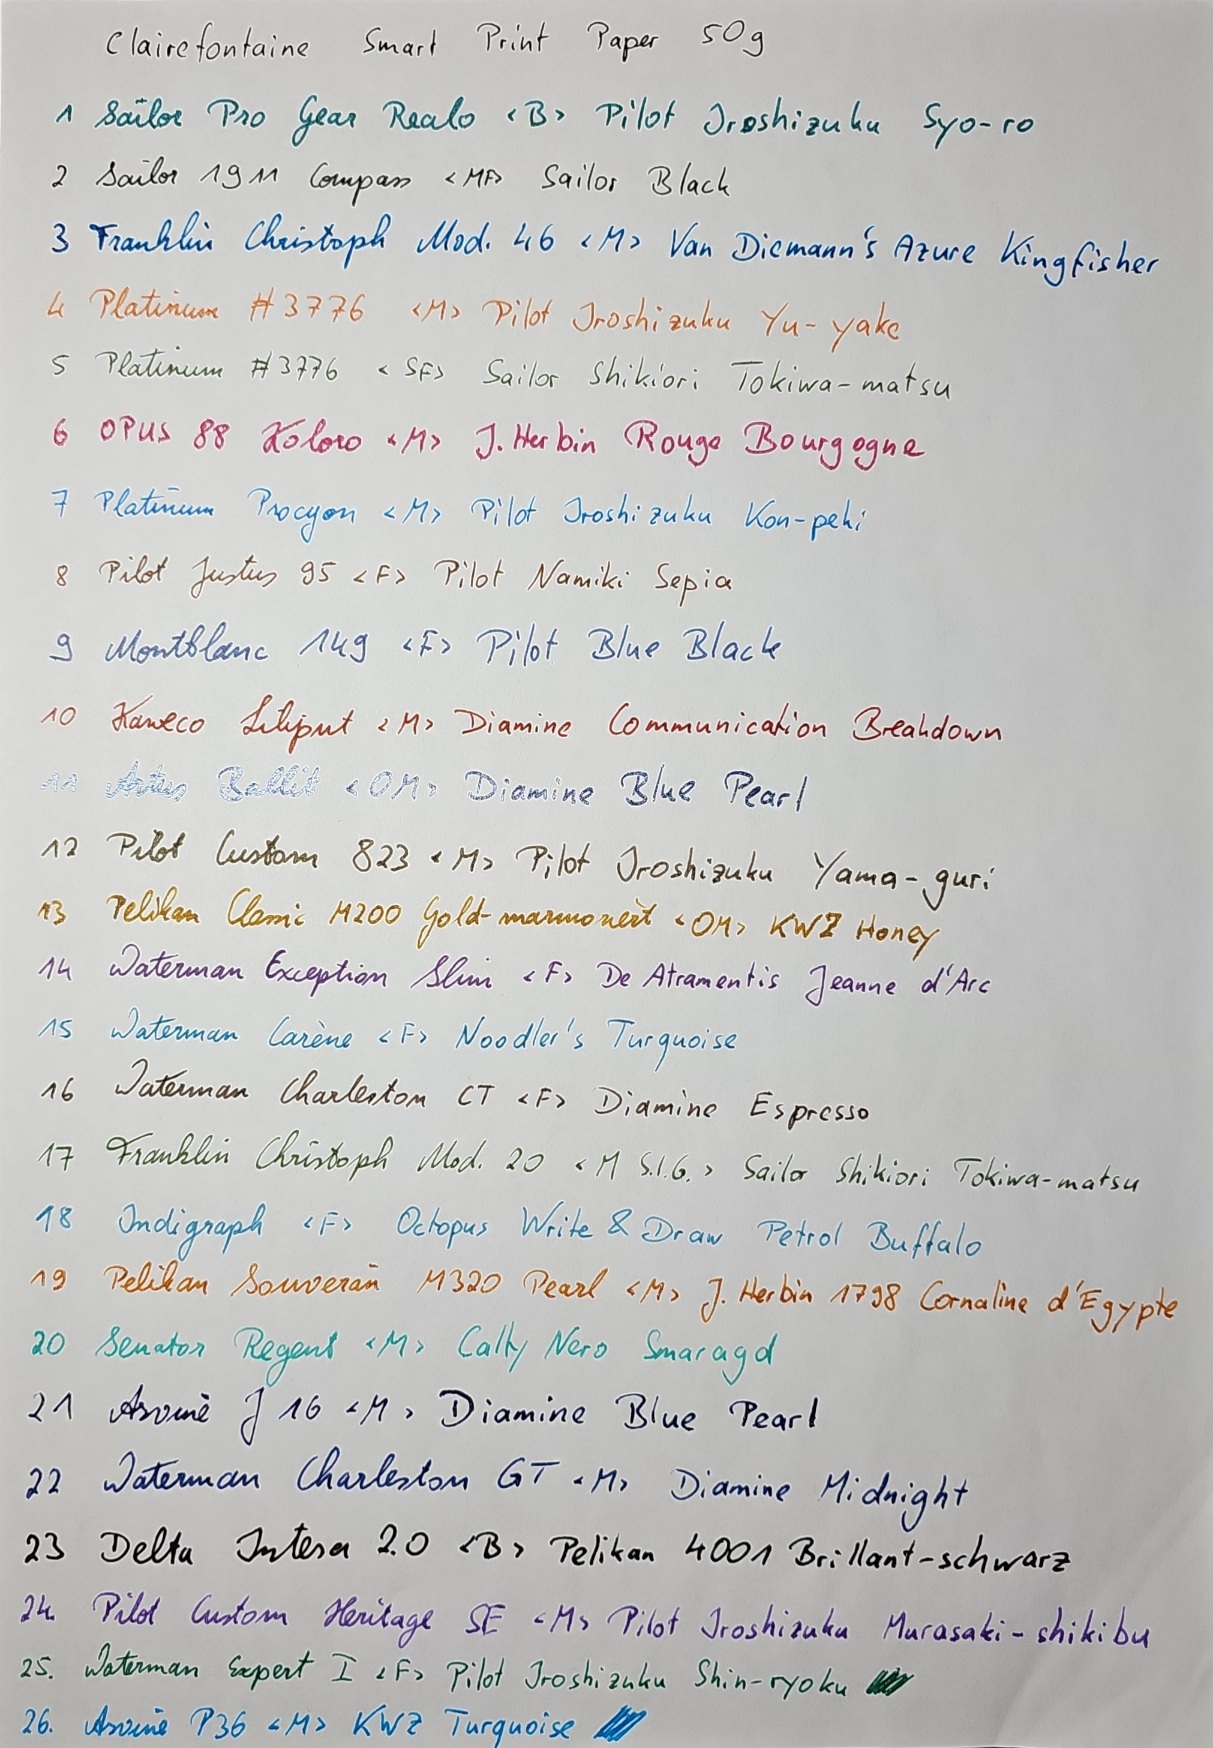 Clairefontaine Smart Print Paper 50g
1 Sailor Pro Gear Realo <B> Pilot Iroshizuku Syo-ro
2 Sailor 1911 Compass <MF> Sailor Black
3 Franklin Christoph Mod. 46 <M> Van Diemann's Azure Kingfisher
4 Platinum #3776 <M> Pilot Iroshizuku Yu-yake
5 Platinum #3776 <SF> Sailor Shikiori Tokiwa-matsu
6 OPUS 88 Koloro <M> J. Herbin Rouge Bourgogne
7 Platinum Procyon <M> Pilot Iroshizuku Kon-peki
8 Pilot Justus 95 <F> Pilot Namiki Sepia
9 Montblanc 149 <F> Pilot Blue Black
10 Kaweco Liliput <M> Diamine Communication Breakdown
11 Artus Ballit <OM> Diamine Blue Pearl
12 Pilot Custom 823 <M> Pilot Iroshizuku Yama-guri
13 Pelikan Classic M200 Gold-marmoriert <OM> KWZ Honey
14 Waterman Exception Slim <F> De Atramentis Jeanne d'Arc
15 Waterman Carène <F> Noodler's Turquoise
16 Waterman Charleston CT <F> Diamine Espresso
17 Franklin Christoph Mod. 20 <M S.I.G.> Sailor Shikiori Tokiwa-matsu
18 Indigraph <F> Octopus Write & Draw Petrol Buffalo
19 Pelikan Souverän M320 Pearl <M> J. Herbin 1798 Cornaline d'Egypte
20 Senator Regent <M> Cally Nero Smaragd
21 Asvine J16 <M> Diamine Blue Pearl
22 Waterman Charleston GT <M> Diamine Midnight
23 Delta Intesa 2.0 <B> Pelikan 4001 Brillant-schwarz
24. Pilot Custom Heritage SE <M> Pilot Iroshizuku Murasaki-shikibu
25. Waterman Expert I <F> Pilot Iroshizuku Shin-ryoku
26. Asvine P36 <M> KWZ Turquoise